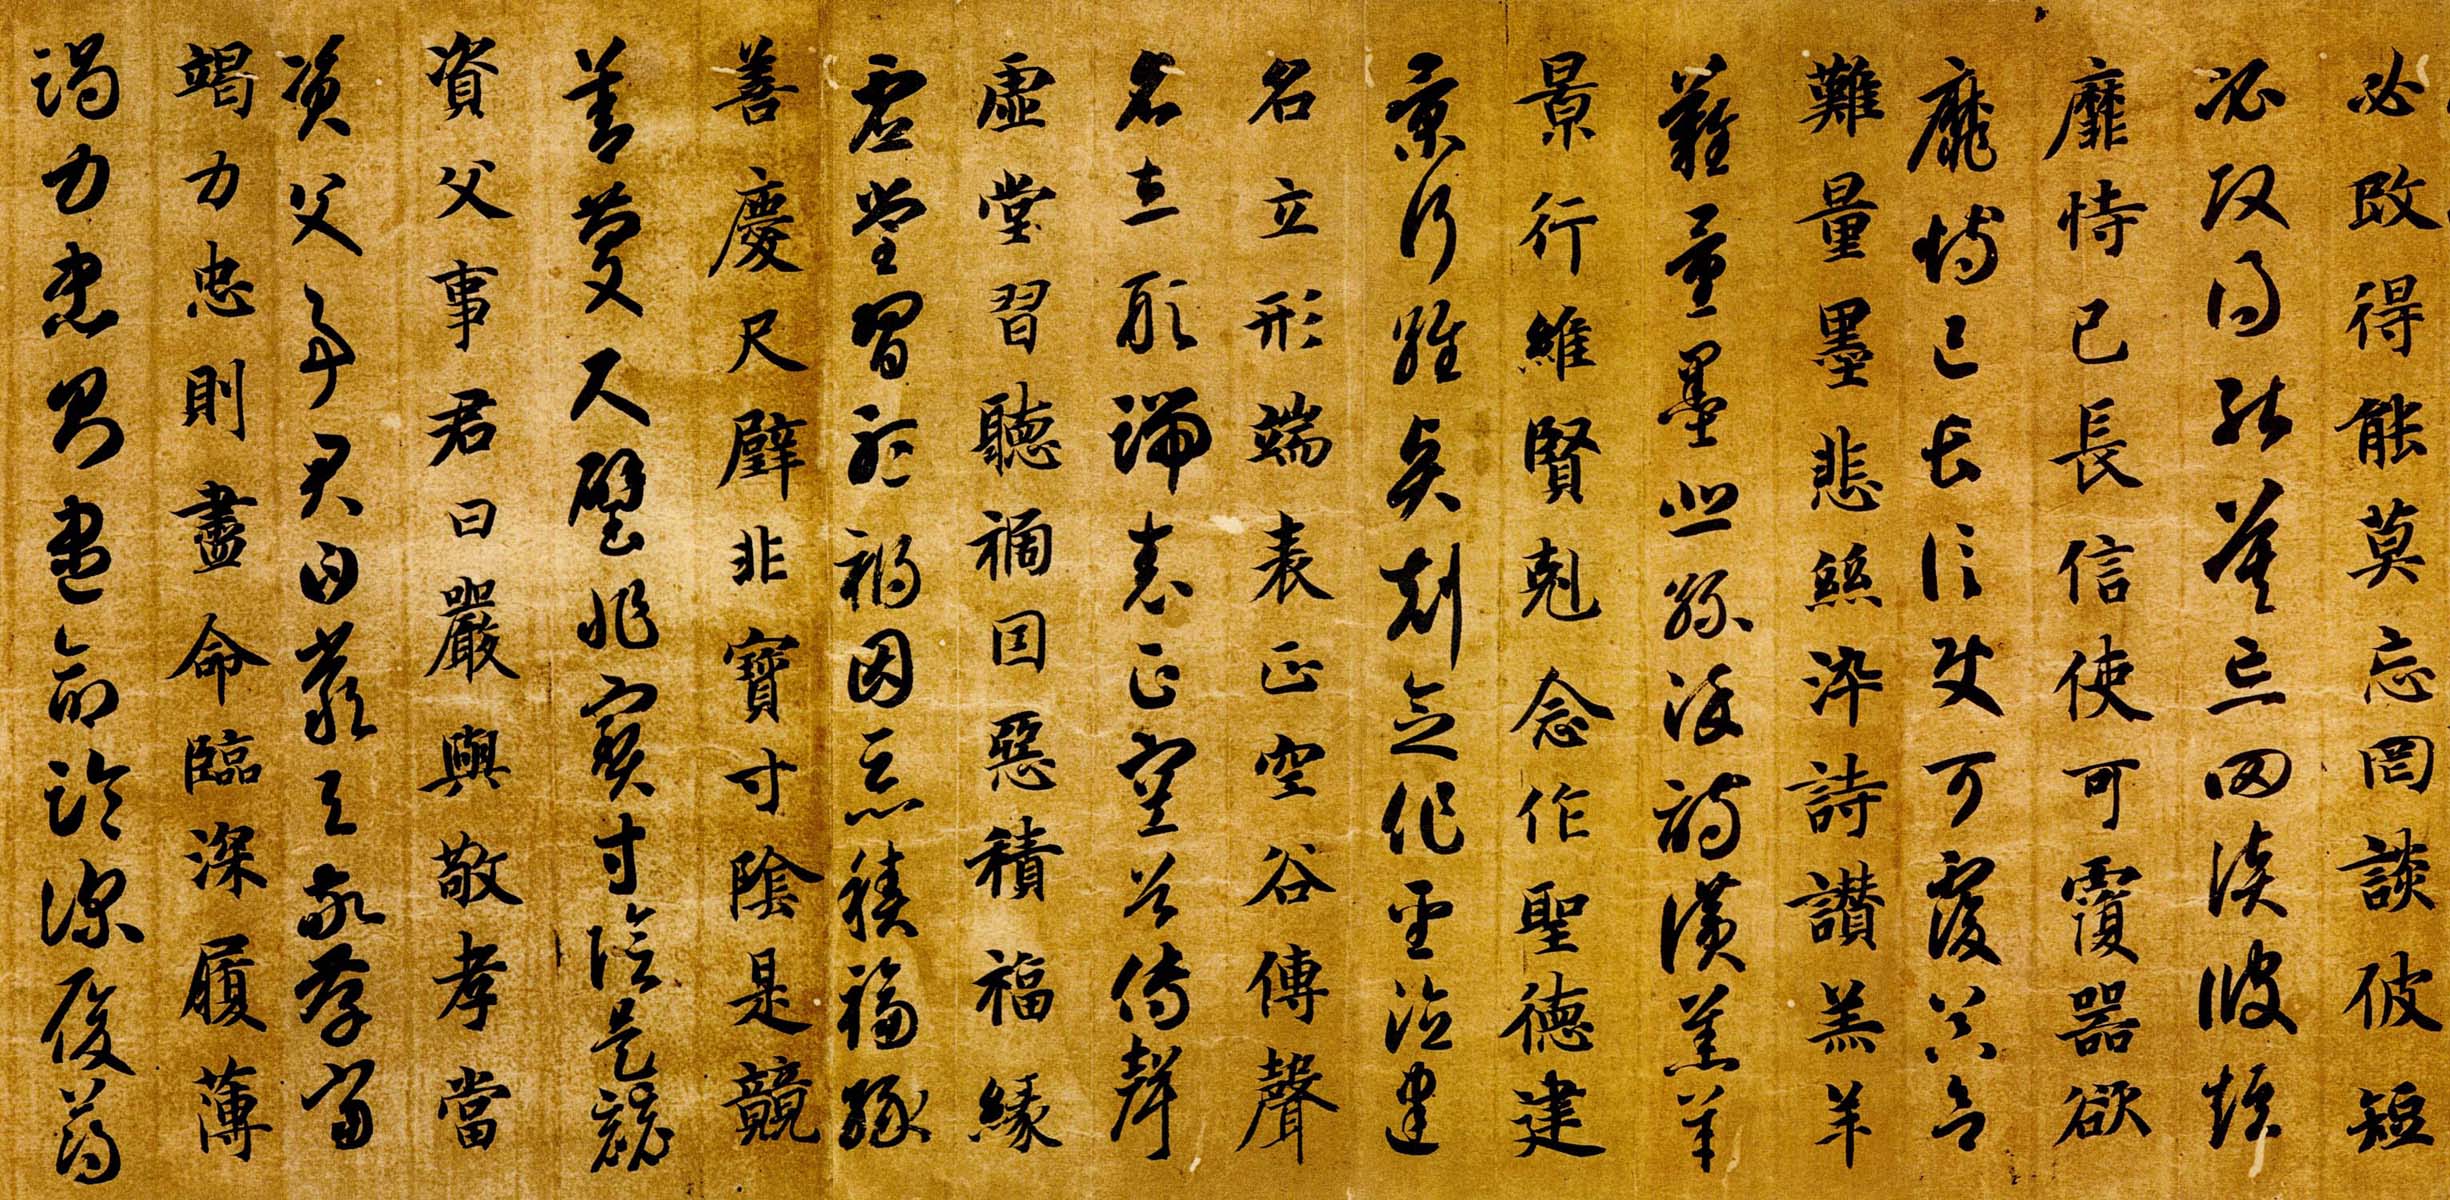 必改得能莫忘罔談彼短
必改得能莫忘罔談彼短
靡恃己長信使可覆器欲
靡恃己長信使可覆器欲
難量墨悲絲染詩讚羔羊
難量墨悲絲染詩讚羔羊
景行維賢剋念作聖德建
景行維賢剋念作聖德建
名立形端表正空谷傳聲
名立形端表正空谷傳聲
虛堂習聽禍因惡積福緣
虛堂習聽禍因惡積福緣
善慶尺璧非寶寸陰是競
善慶尺璧非寶寸陰是競
資父事君曰嚴與敬孝當
資父事君曰嚴與敬孝當
竭力忠則盡命臨深履薄
竭力忠則盡命臨深履薄